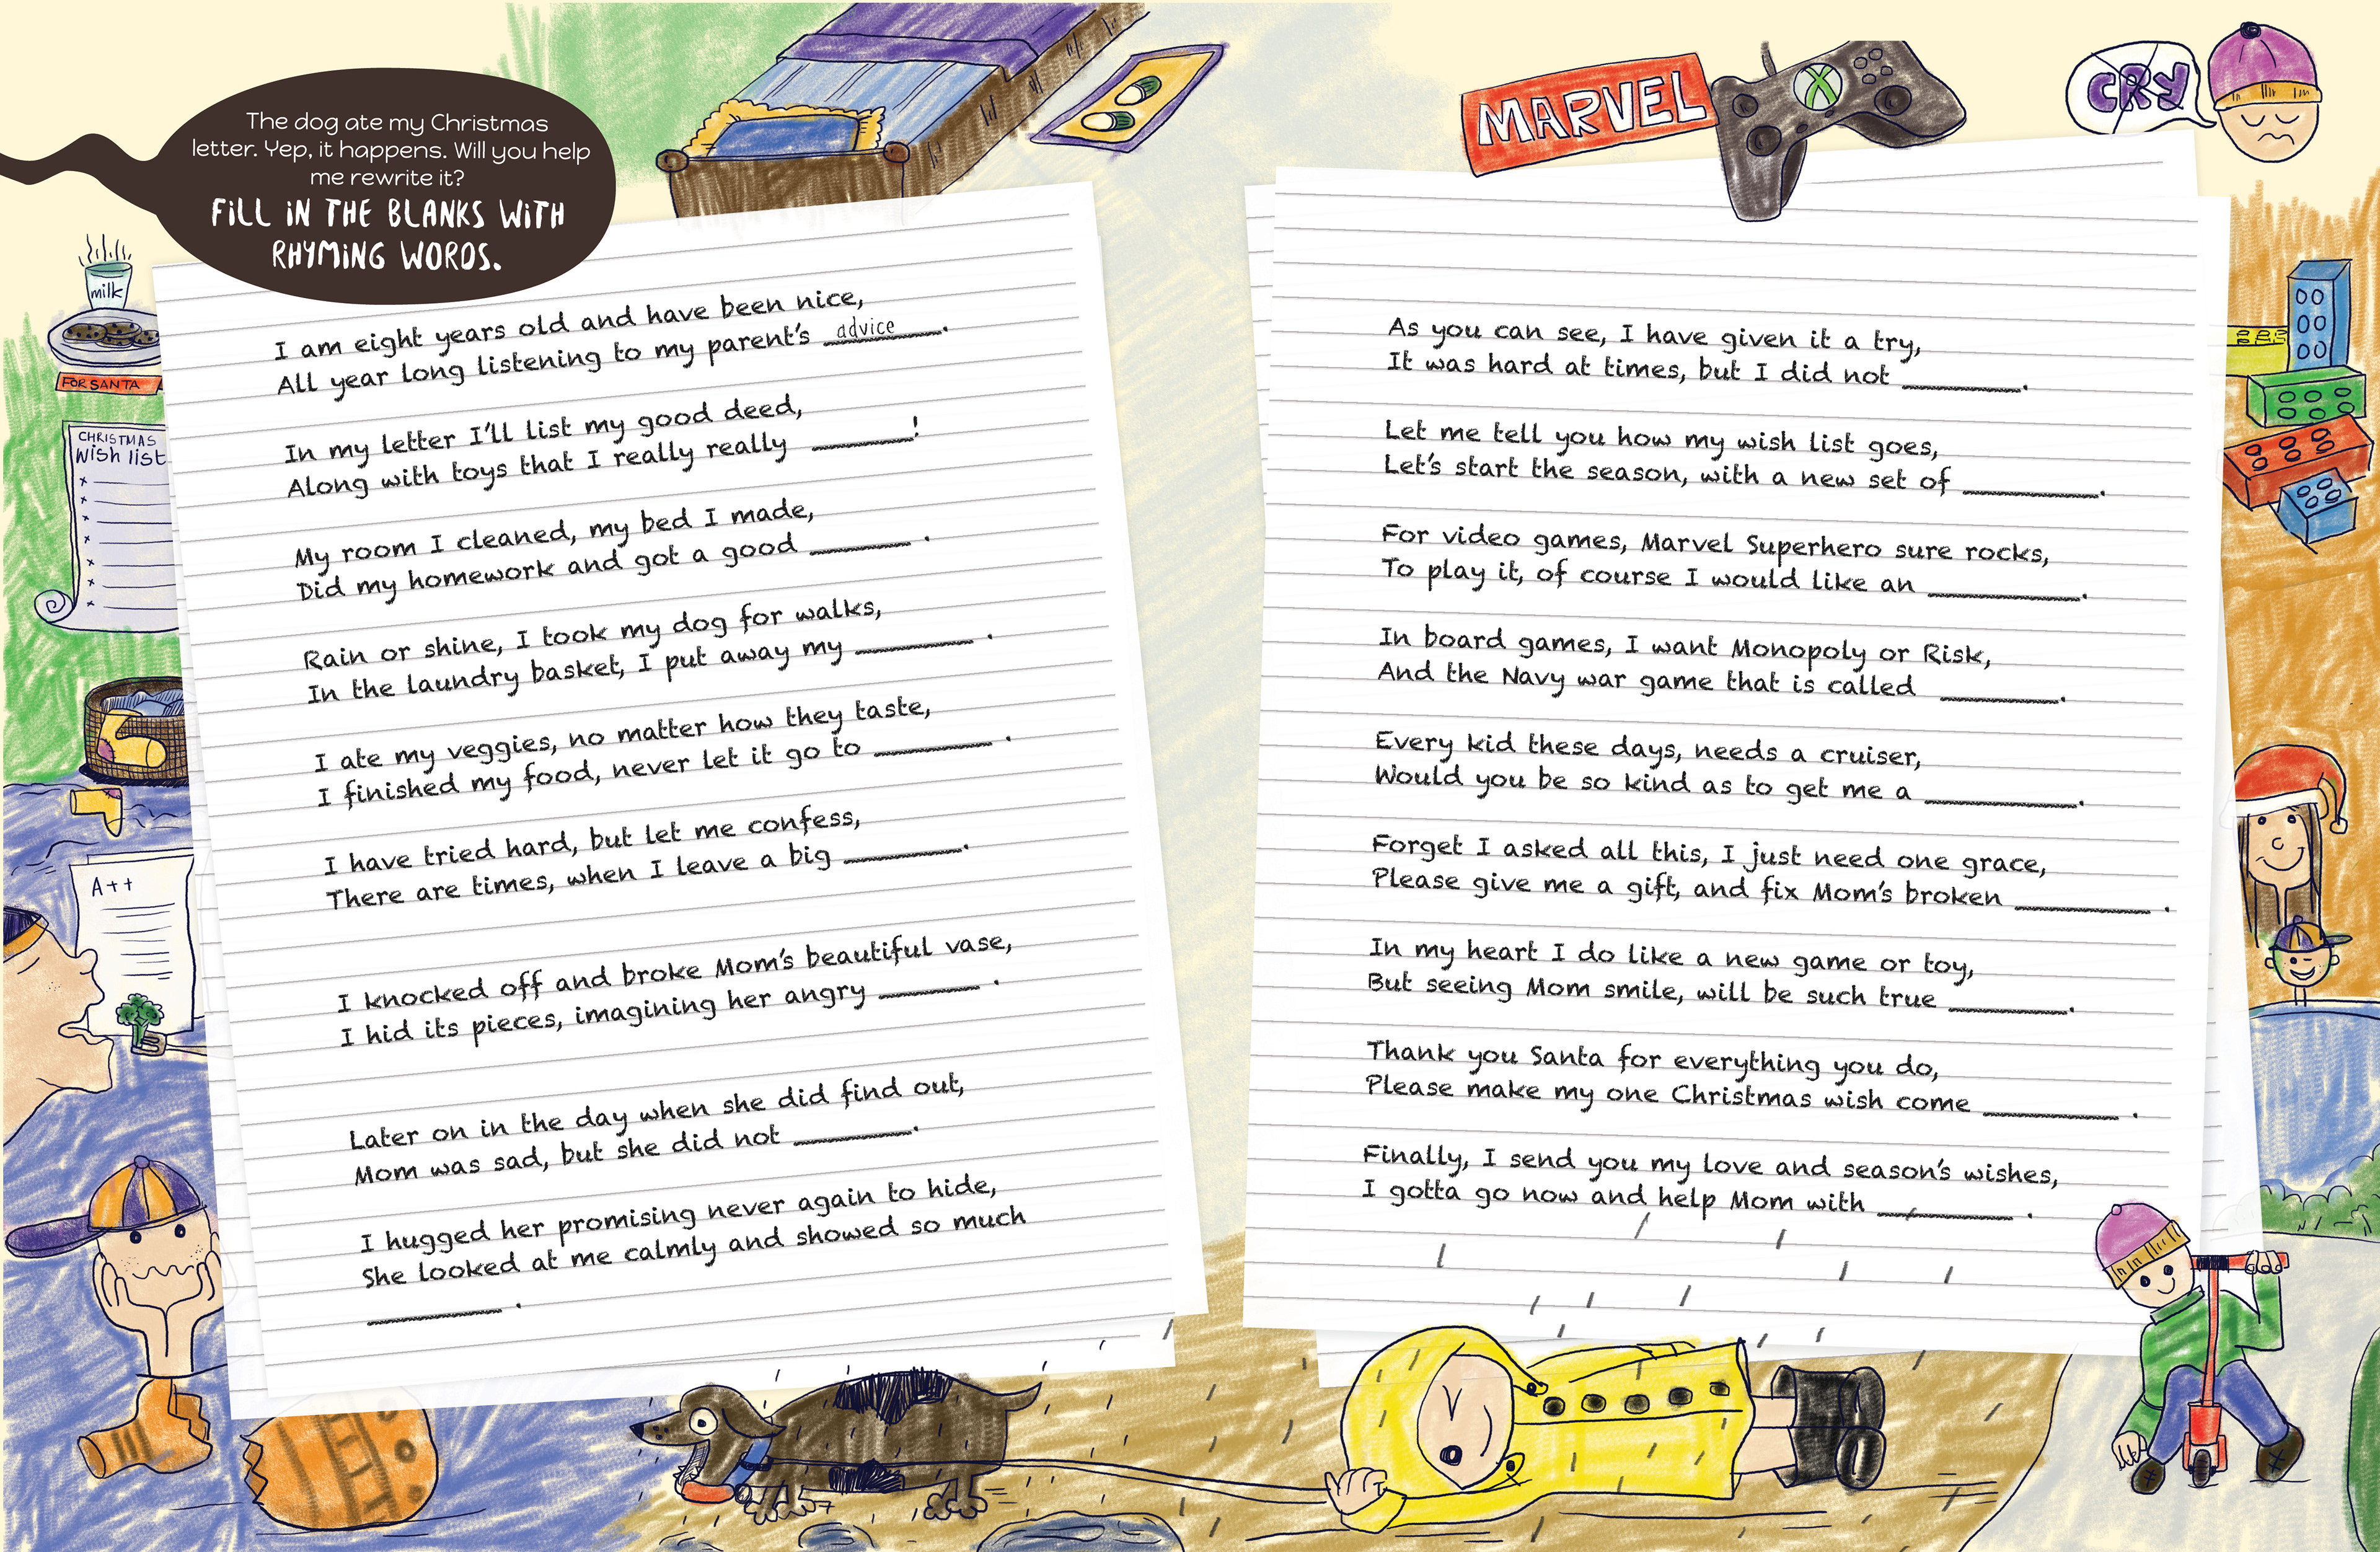 The dog ate my Christmas
letter. Yep, it happens. Will you help
me rewrite it?
FILL IN THE BLANKS WITH
RHYMING WORDS.
milk
FOR SANTA
CHRISTMAS
Wish list
x
x
x
x
x
x
x
A++
I am eight years old and have been nice,
All year long listening to my parent's advice.
In my letter I'll list my good deed,
Along with toys that I really really ________!
My room I cleaned, my bed I made,
Did my homework and got a good ________.
Rain or shine, I took my dog for walks,
In the laundry basket, I put away my ________.
I ate my veggies, no matter how they taste,
I finished my food, never let it go to ________.
I have tried hard, but let me confess,
There are times, when I leave a big ________.
I knocked off and broke Mom's beautiful vase,
I hid its pieces, imagining her angry ________.
Later on in the day when she did find out,
Mom was sad, but she did not ________.
I hugged her promising never again to hide,
She looked at me calmly and showed so much
________.
MARVEL
X
CRY
As you can see, I have given it a try,
It was hard at times, but I did not ________.
Let me tell you how my wish list goes,
Let's start the season, with a new set of ________.
For video games, Marvel Superhero sure rocks,
To play it, of course I would like an ________.
In board games, I want Monopoly or Risk,
And the Navy war game that is called ________.
Every kid these days, needs a cruiser,
Would you be so kind as to get me a ________.
Forget I asked all this, I just need one grace,
Please give me a gift, and fix Mom's broken ________.
In my heart I do like a new game or toy,
But seeing Mom smile, will be such true ________.
Thank you Santa for everything you do,
Please make my one Christmas wish come ________.
Finally, I send you my love and season's wishes,
I gotta go now and help Mom with ________.